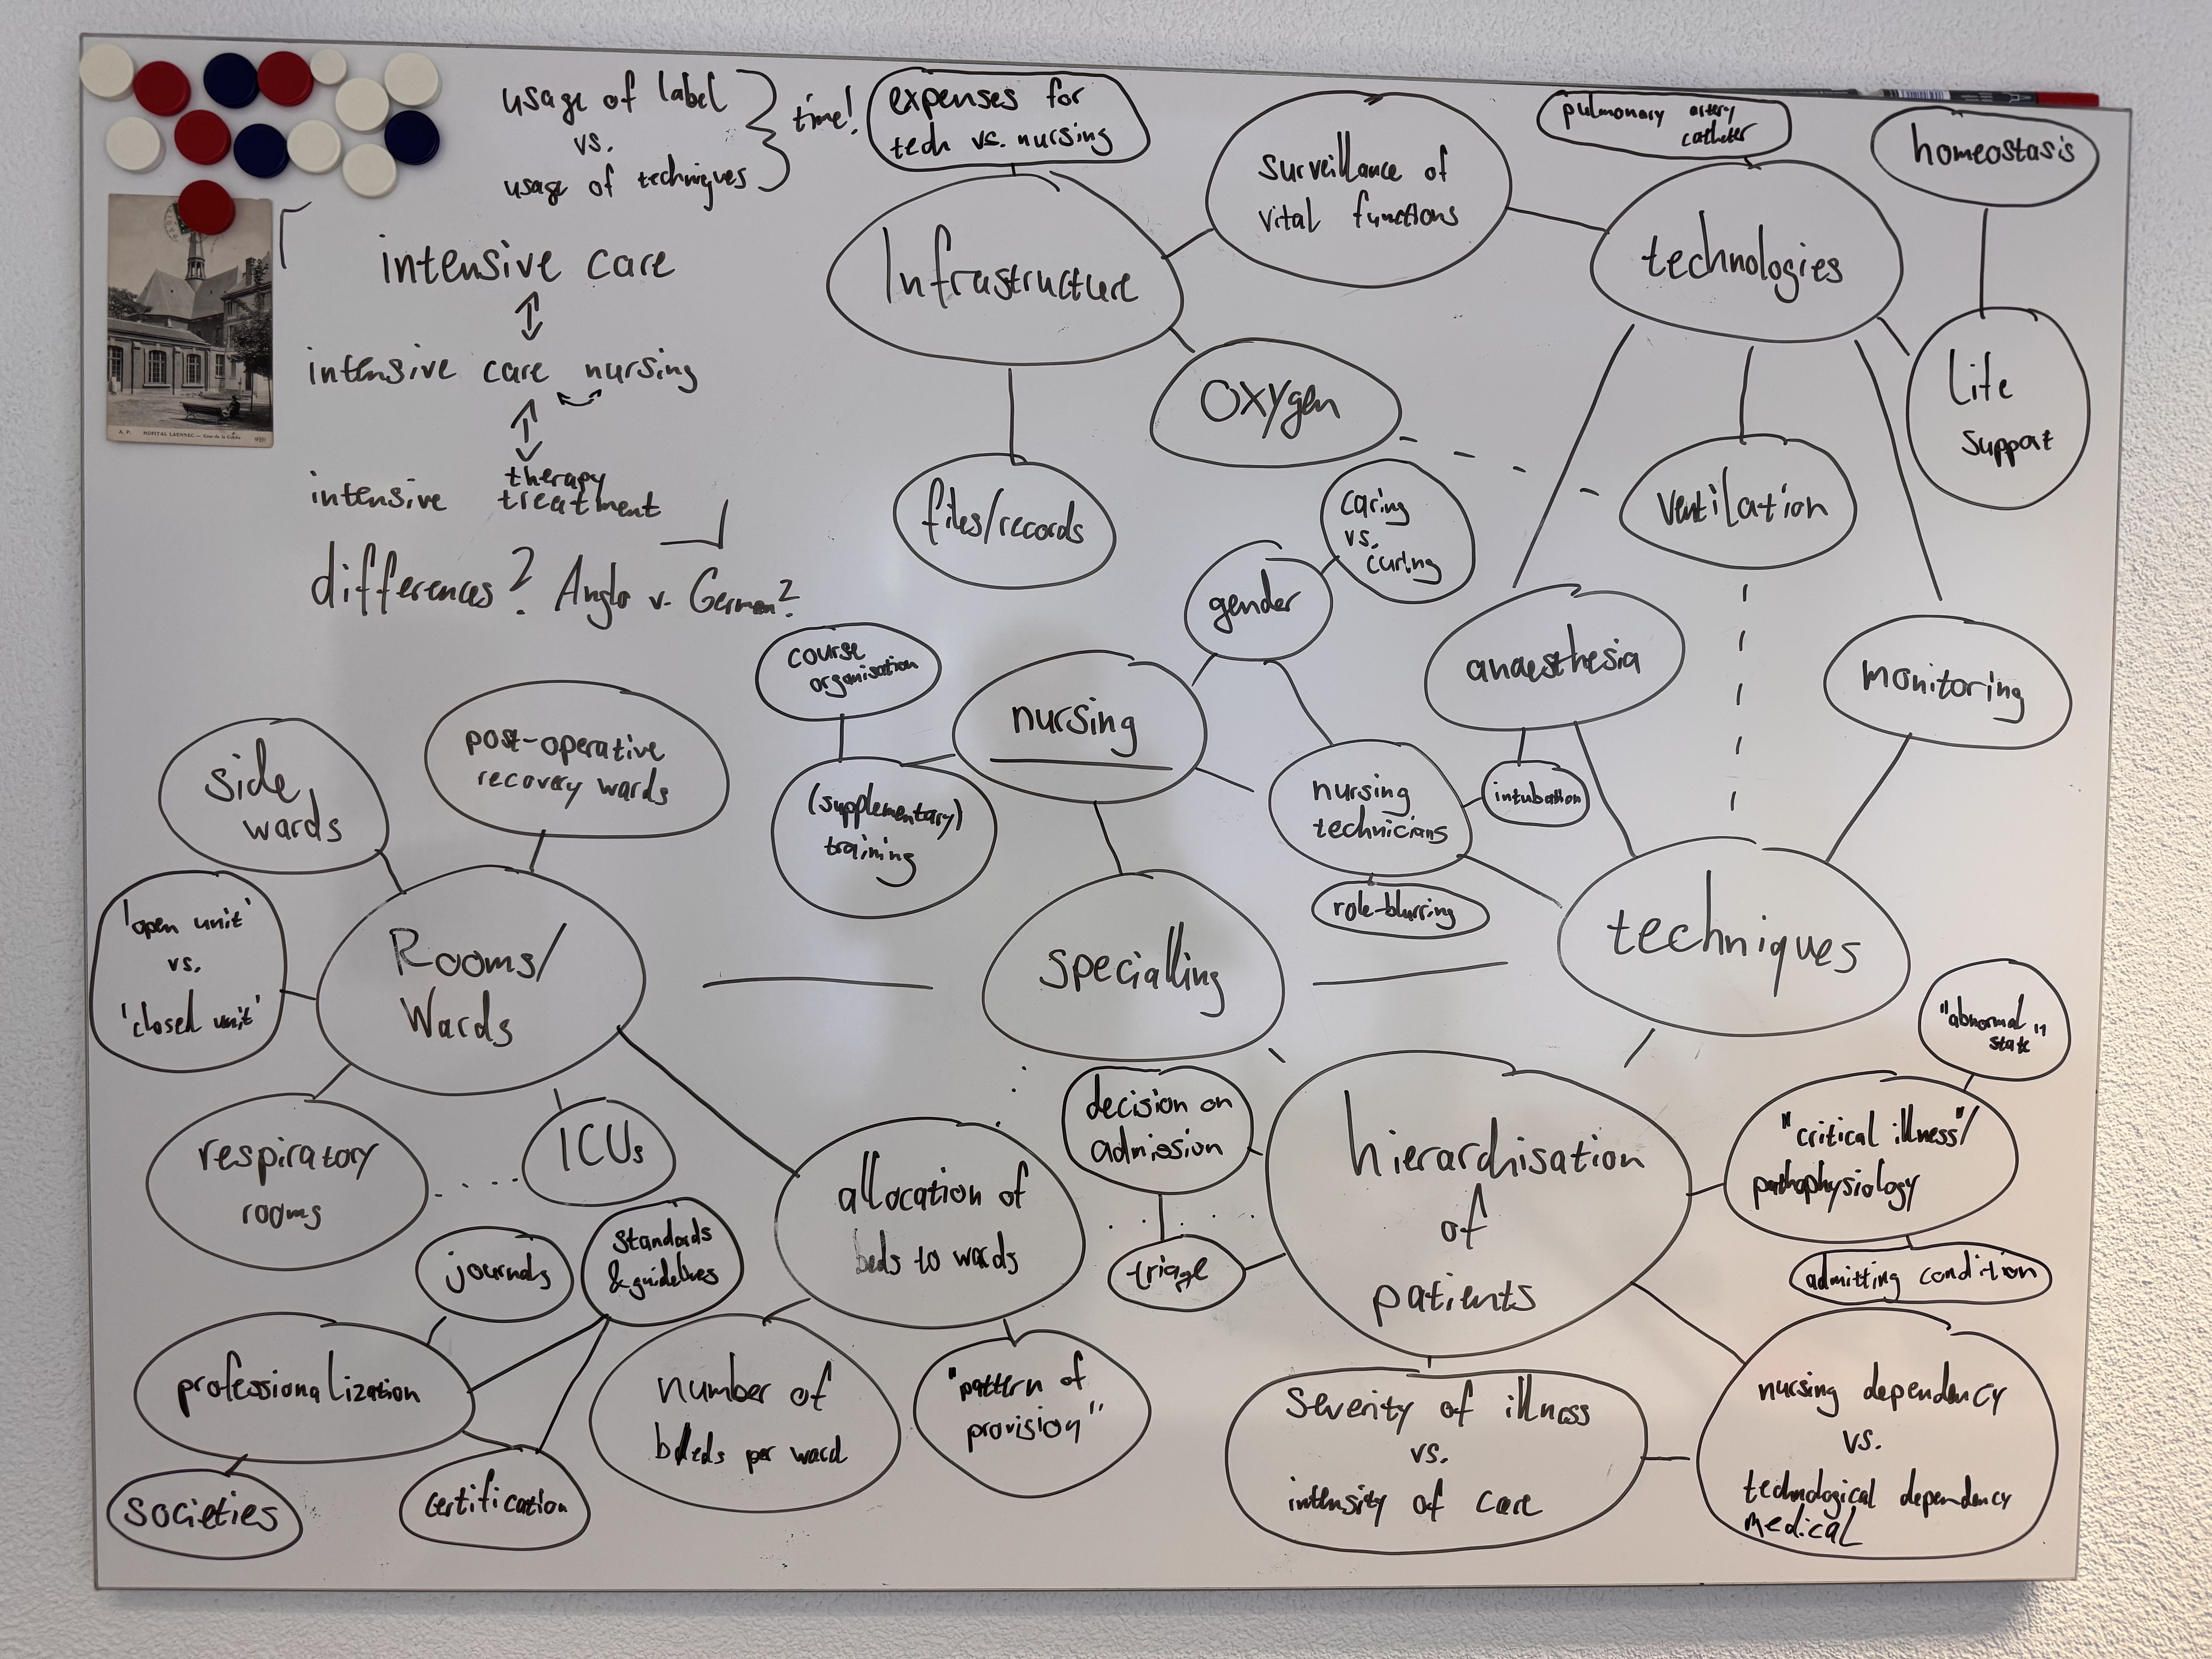 usage of label
vs.
usage of techniques
time!
expenses for
tech vs. nursing
surveillance of
vital functions
pulmonary artery
catheter
homeostasis
intensive care
Infrastructure
technologies
intensive care nursing
oxygen
Life
support
therapy
intensive treatment
files/records
caring
vs.
curing
ventilation
differences? Anglo v. German?
gender
course
organisation
nursing
anaesthesia
monitoring
side
wards
post-operative
recovery wards
(supplementary)
training
nursing
technicians
intubation
role-blurring
'open unit'
vs.
'closed unit'
Rooms/
Wards
specialling
techniques
"abnormal"
state
respiratory
rooms
ICUs
decision on
admission
hierarchisation
of
patients
"critical illness"/
pathophysiology
allocation of
beds to wards
triage
admitting condition
journals
standards
& guidelines
professionalization
number of
beds per ward
"pattern of
provision"
severity of illness
vs.
intensity of care
nursing dependency
vs.
technological dependency
medical
societies
certification
HOPITAL LAENNEC